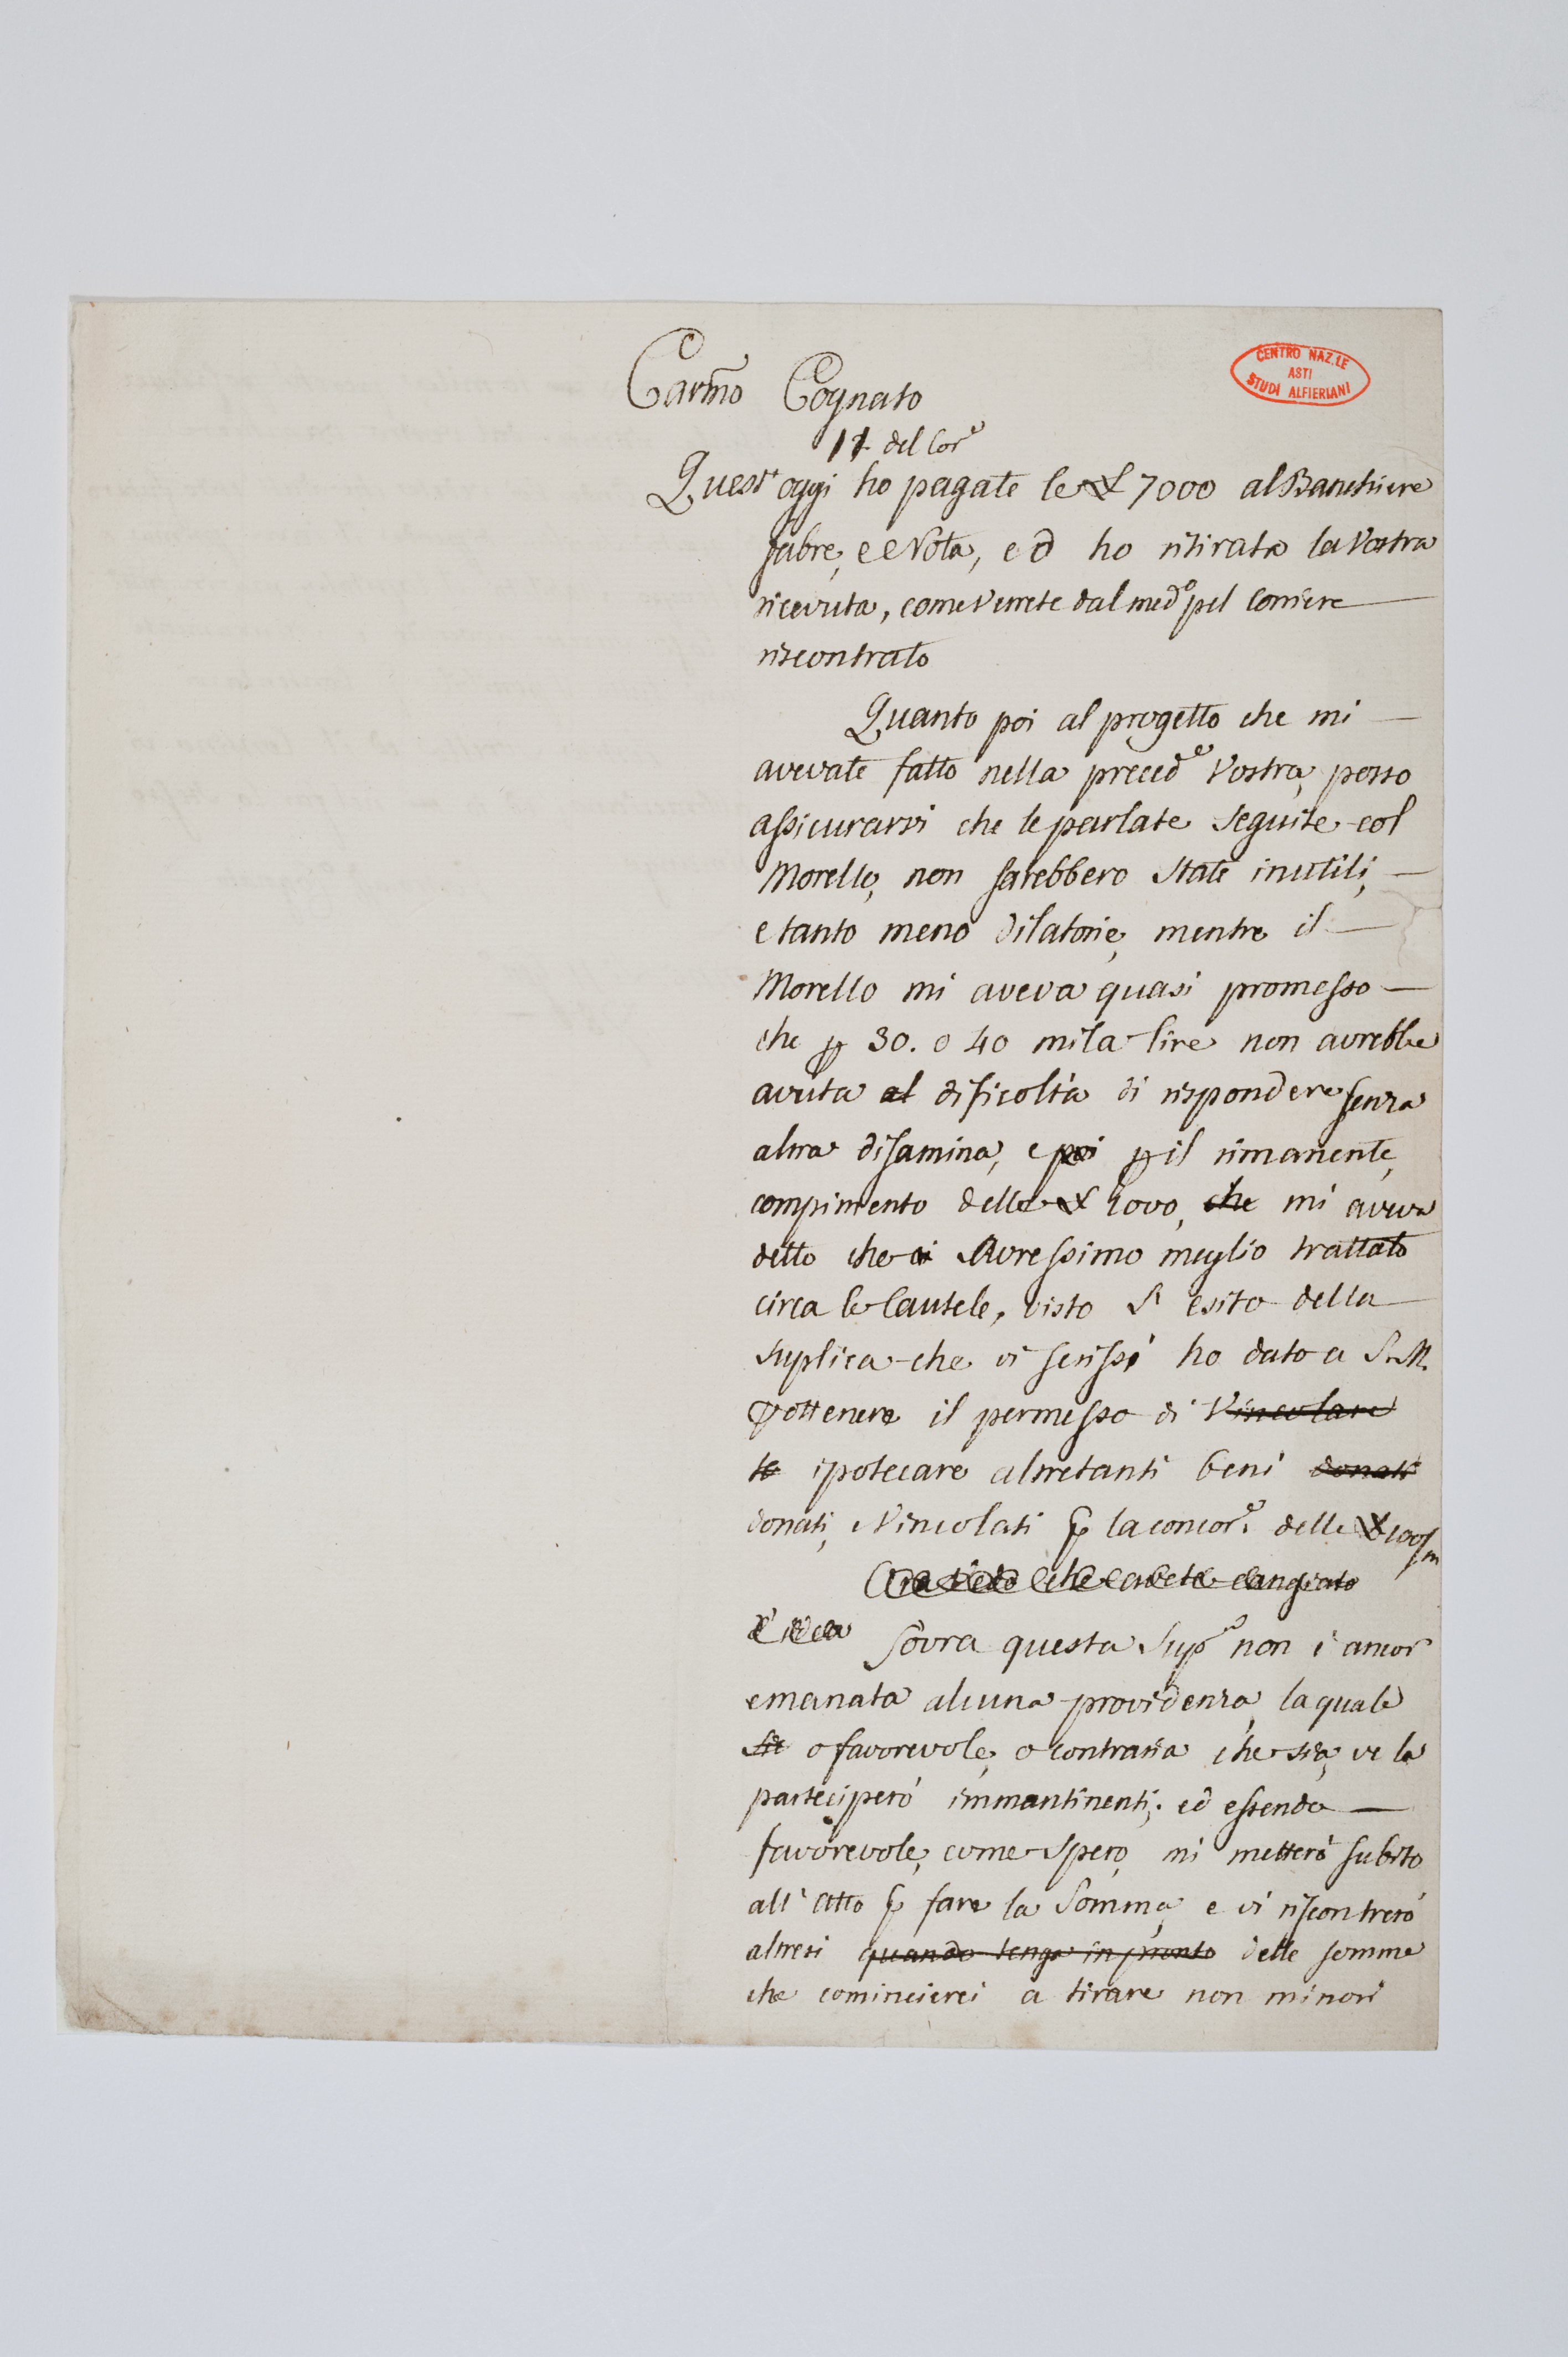 Carmo Cognato
CENTRO NAZ.LE
ASTI
STUDI ALFIERIANI
11 del Cor.e
Quest'oggi ho pagate le £ 7000 al Banchiere
fabre, e Nota, ed ho ritirata la Vostra
ricevuta, come verrete dal med.o pel Corriere
riscontrato
Quanto poi al progetto che mi
avevate fatto nella preced.e Vostra, posso
assicurarvi che le parlate seguite col
Morello, non sarebbero state inutili,
e tanto meno dilatorie, mentre il
Morello mi aveva quasi promesso
che p 30. o 40 mila lire non avrebbe
avuta al dificoltà di rispondere senza
altra disamina, e poi p il rimanente,
compimento delle £ che mi aveva
detto che ci Avressimo meglio trattato
circa le Cautele, visto l'esito della
suplica che vi scrissi ho dato a S.M.
p ottenere il permesso di Vincolare
le ipotecare altretanti beni donati
donati, Vincolati p la concor.e delle £ 100/m
Ora vedo che avete cangiato
d'idea Sovra questa Sup.a non è ancor
emanata alcuna providenza, la quale
sia o favorevole, o contraria che sia, ve la
parteciperò immantinenti; ed essendo
favorevole, come spero, mi metterò subito
all'Atto p fare la Somma, e vi riscontrerò
altresi quando tengo in pronto delle somme
che comincierei a tirare non minori